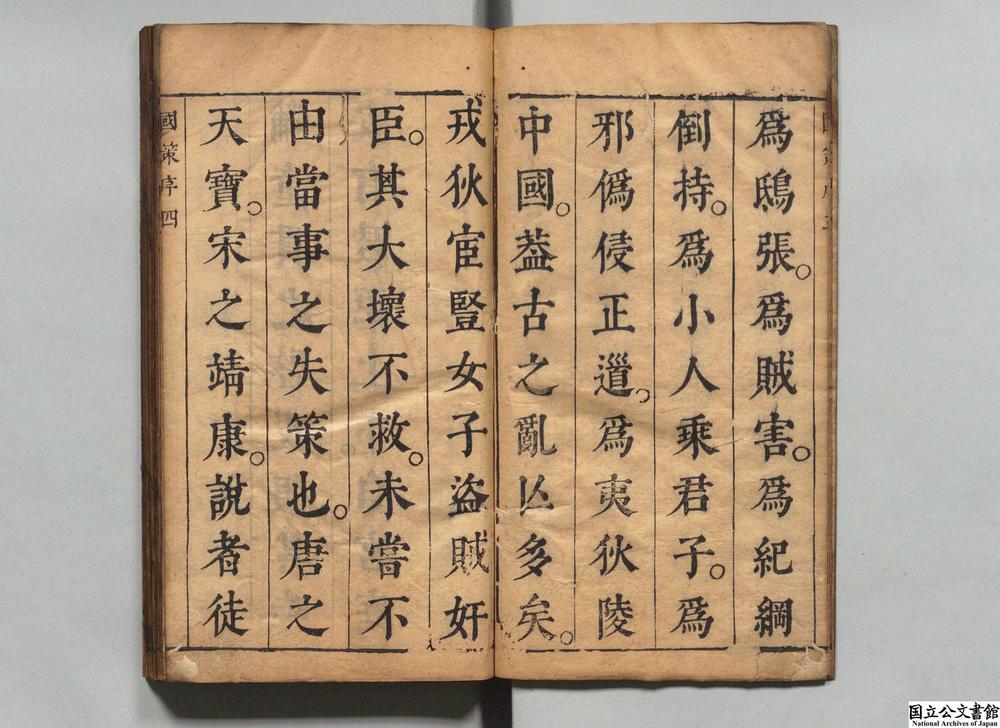 爲鴟張。爲賊害。爲紀綱
倒持。爲小人乘君子。爲
邪僞侵正道。爲夷狄陵
中國。葢古之亂亾多矣。
戎狄宦豎女子盜賊奸
臣。其大壞不救。未嘗不
由當事之失策也。唐之
天寶。宋之靖康。說者徒
國策序四
国立公文書館
National Archives of Japan